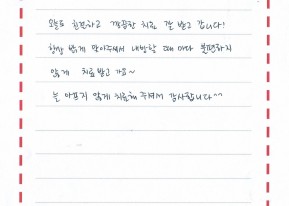 오늘도 친절하고 꼼꼼한 치료 잘 받고 갑니다!
항상 밝게 맞아주셔서 내방할 때 마다 불편하지
않게 치료받고 가요~
늘 아프지 않게 치료해 주셔서 감사합니다^^